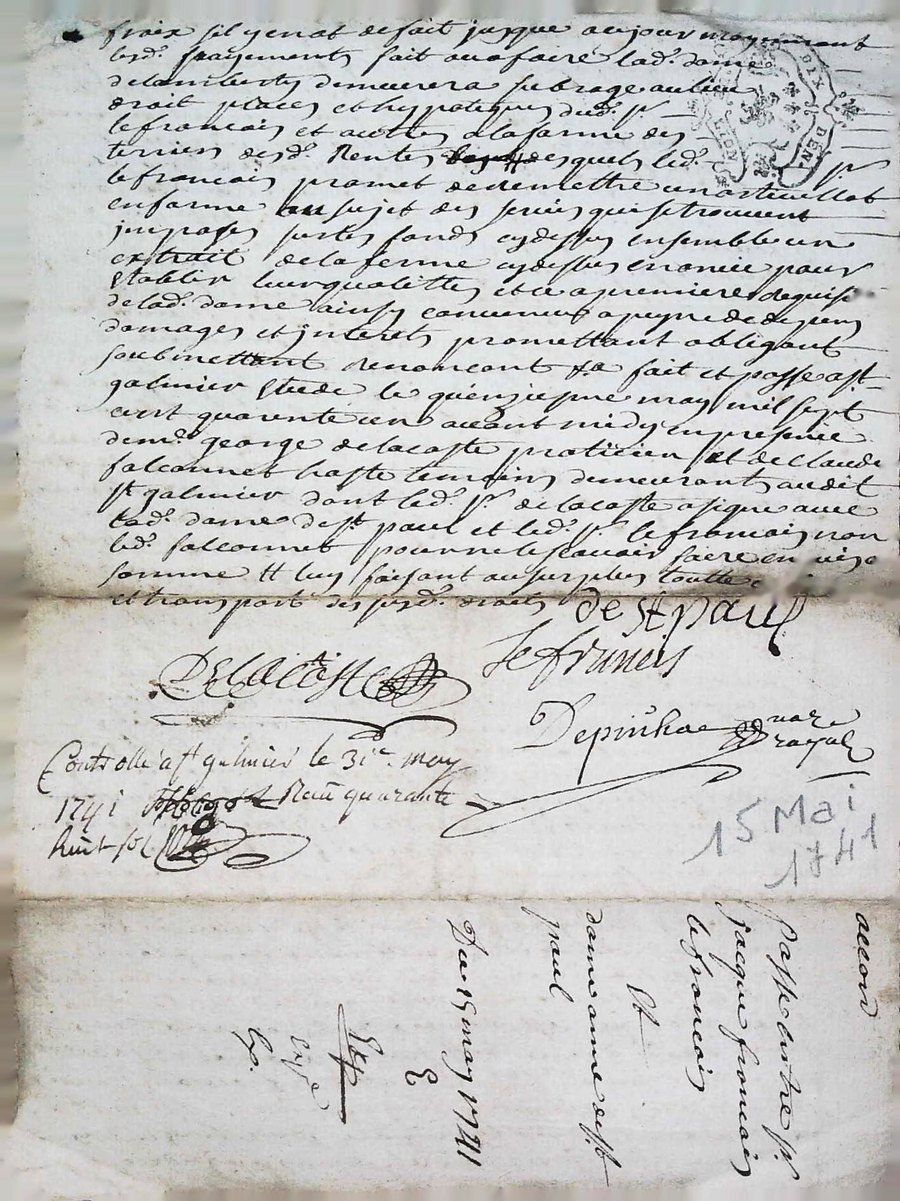 fraix sil yenat defait jusque aujour moyennant
lesd. payements fait auafaire lad. dame
delamberty demeurera subroge aulieu
droit places et hypoteques dud. sr.
lefrancois et autres alaforme des
terriers desd. Rentes desquels led. sr
lefrancois promet deremettre un
enforme au sujet des servis quisetrouvent
imposes surles fonds cydessus ensemble un
extrait delaferme cydessus enoncée pour
Etablir leurqualittes et ce apremiere Requise
delad. dame ainsy convenus apeyne de depens
domages et jnterets promettant obligeant
soubmettant Renoncant &a fait et passe ast
galmier Etude le quinziesme may mil sept
cent quarente un avant midy en presence
demr. george delacoste praticien et de Claude
falconnet hoste temoins demeurants audit
st galmier dont led. sr. delacoste asigne avec
lad. dame dest. paul et led. sr. lefrancois non
led. falconnet pour ne le scavoir faire enquis
somme luy faisant ausurplus toutte
et transport des susd. droits de st paul
Delacoste lefrancis
Controllé ast galmier le 31e. may
1741 Reçu quarante
huit sols
15 Mai
1741
accord
passe entre sr.
jacque francois
lefrancois
Et
dame anne dest.
paul
Du 15 may 1741
E
Exp